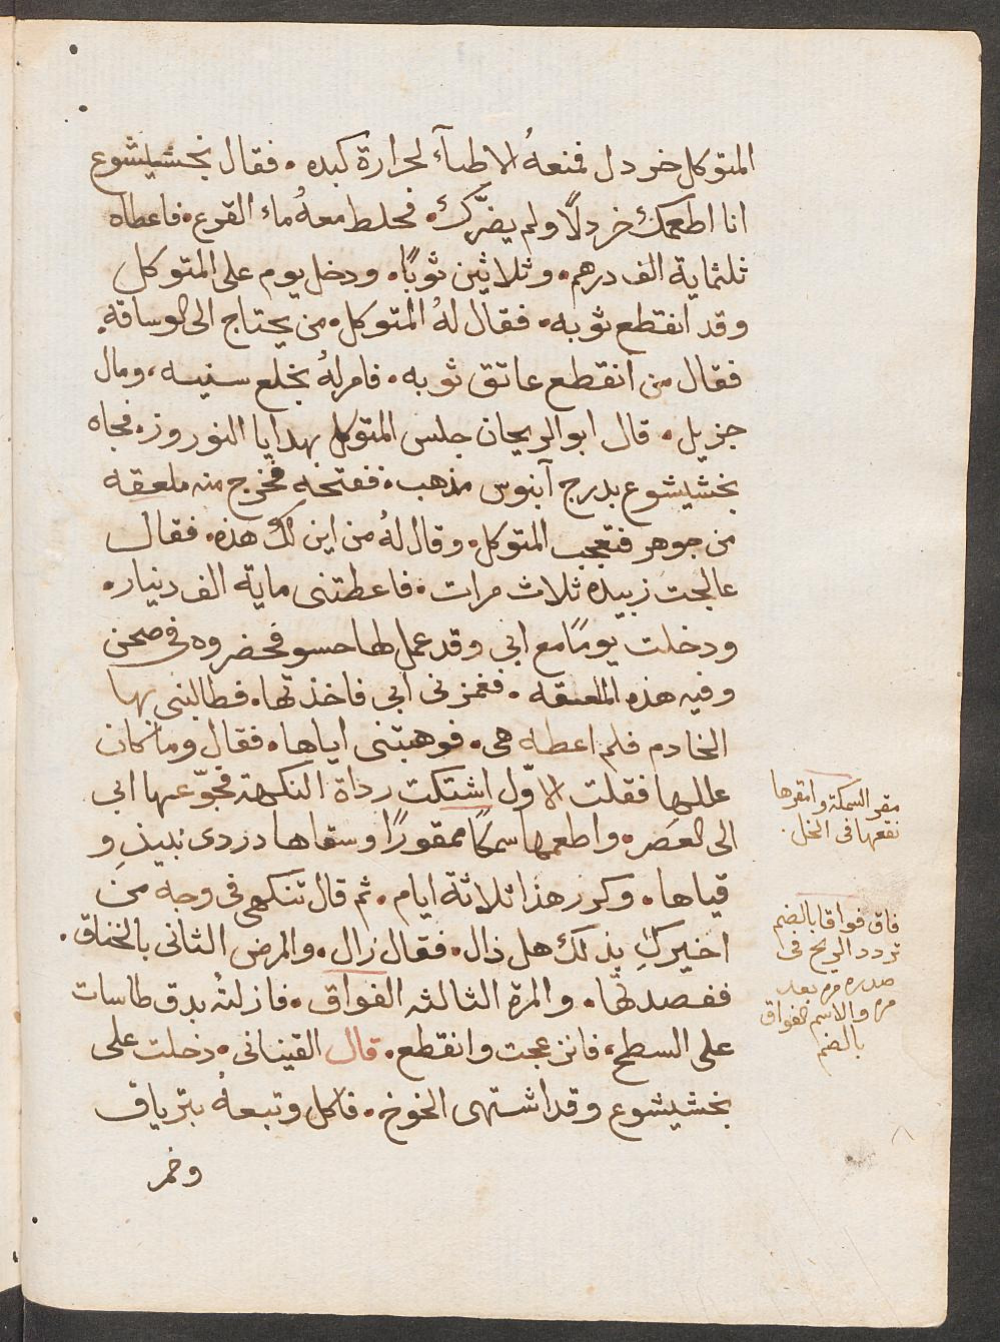 المتوكل خردل فمنعهُ الاطبآء لحرارة كبده • فقال بختيشوع
انا اطعمك خردلًا ولم يضرَّك • فخلط معهُ ماء القرع • فاعطاه
ثلثماية الف درهم • وثلاثين ثوبًا • ودخل يوم على المتوكل
وقد انفتطع ثوبه • فقال لهُ المتوكل • من يحتاج الى الوساقة
فقال من انقطع عاتق ثوبه • فامر لهُ بخلع سنيه • ومال
جزيل • قال ابو الريحان جلس المتوكل بهدايا النوروز • فجاه
بخشيشوع بدرج آبنوس مذهب • ففتحه فخرج منه ملعقه
من جوهر فتعجب المتوكل • وقال لهُ من اين لك هذه • فقال
عالجت زبيده ثلاث مرات • فاعطتنى ماية الف دينار •
ودخلت يومًا مع ابي وقد عمل لها حسو فحضروه في صحن
وفيه هذه الملعقه • فغمزنى ابى فاخذتها • فطالبنى بها
الخادم فلم اعطه هى • فوهبتنى اياها • فقال وما كان
عللها فقلت الاوّل اشتكت رداة النكهة فجوّعها ابى
الى العصر • واطعمها سمكًا ممقورًا وسقاها دردى نبيذٍ و
قياها • وكرر هذا ثلاثة ايام • ثم قال تنكهى فى وجه من
اخبركِ بذلك هل ذال • فقال زال • والمرض الثانى بالخناق •
ففصدتها • والمرة الثالثه الفواق • فازلتهُ بدق طاسات
على السطح • فانزعجت وانقطع • قال القينانى • دخلت على
بخشيشوع وقد اشتهى الخوخ • فاكل وتبعهُ بترياق
وخمر
مقر السمكة وامقرها
نقعها فى الخل •
فاق فواقا بالضم
تردد الريح فى
صدره مره بعد
مره والاسم الفواق
بالضم